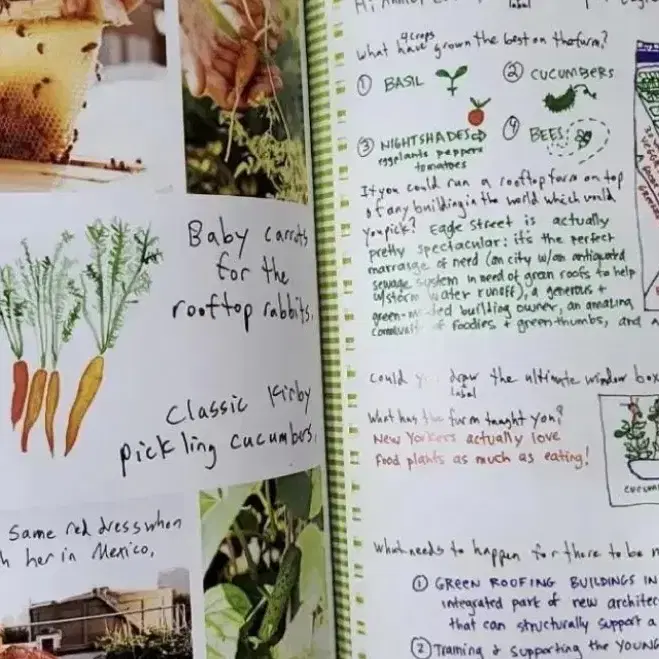 Baby carrots
for the
rooftop rabbits.
Classic Kirby
pickling cucumbers.
same red dress when
her in Mexico,
label
4 crops
what have grown the best on the farm?
① BASIL
② CUCUMBERS
③ NIGHTSHADES
eggplants peppers
tomatoes
④ BEES
If you could run a rooftop farm on top
of any building in the world which would
you pick? Eagle Street is actually
pretty spectacular: it's the perfect
marraige of need (an city w/an antiquated
sewage system in need of green roofs to help
w/storm water runoff), a generous +
building owner, an amazing
of foodies + greenthumbs, and a
could draw the ultimate window box
label
What has the farm taught you?
New Yorkers actually love
food plants as much as eating!
What needs to happen for there to be
① GREEN ROOFING BUILDINGS IN
integrated part of new
that can structurally support a
② Training & supporting the YOUNG